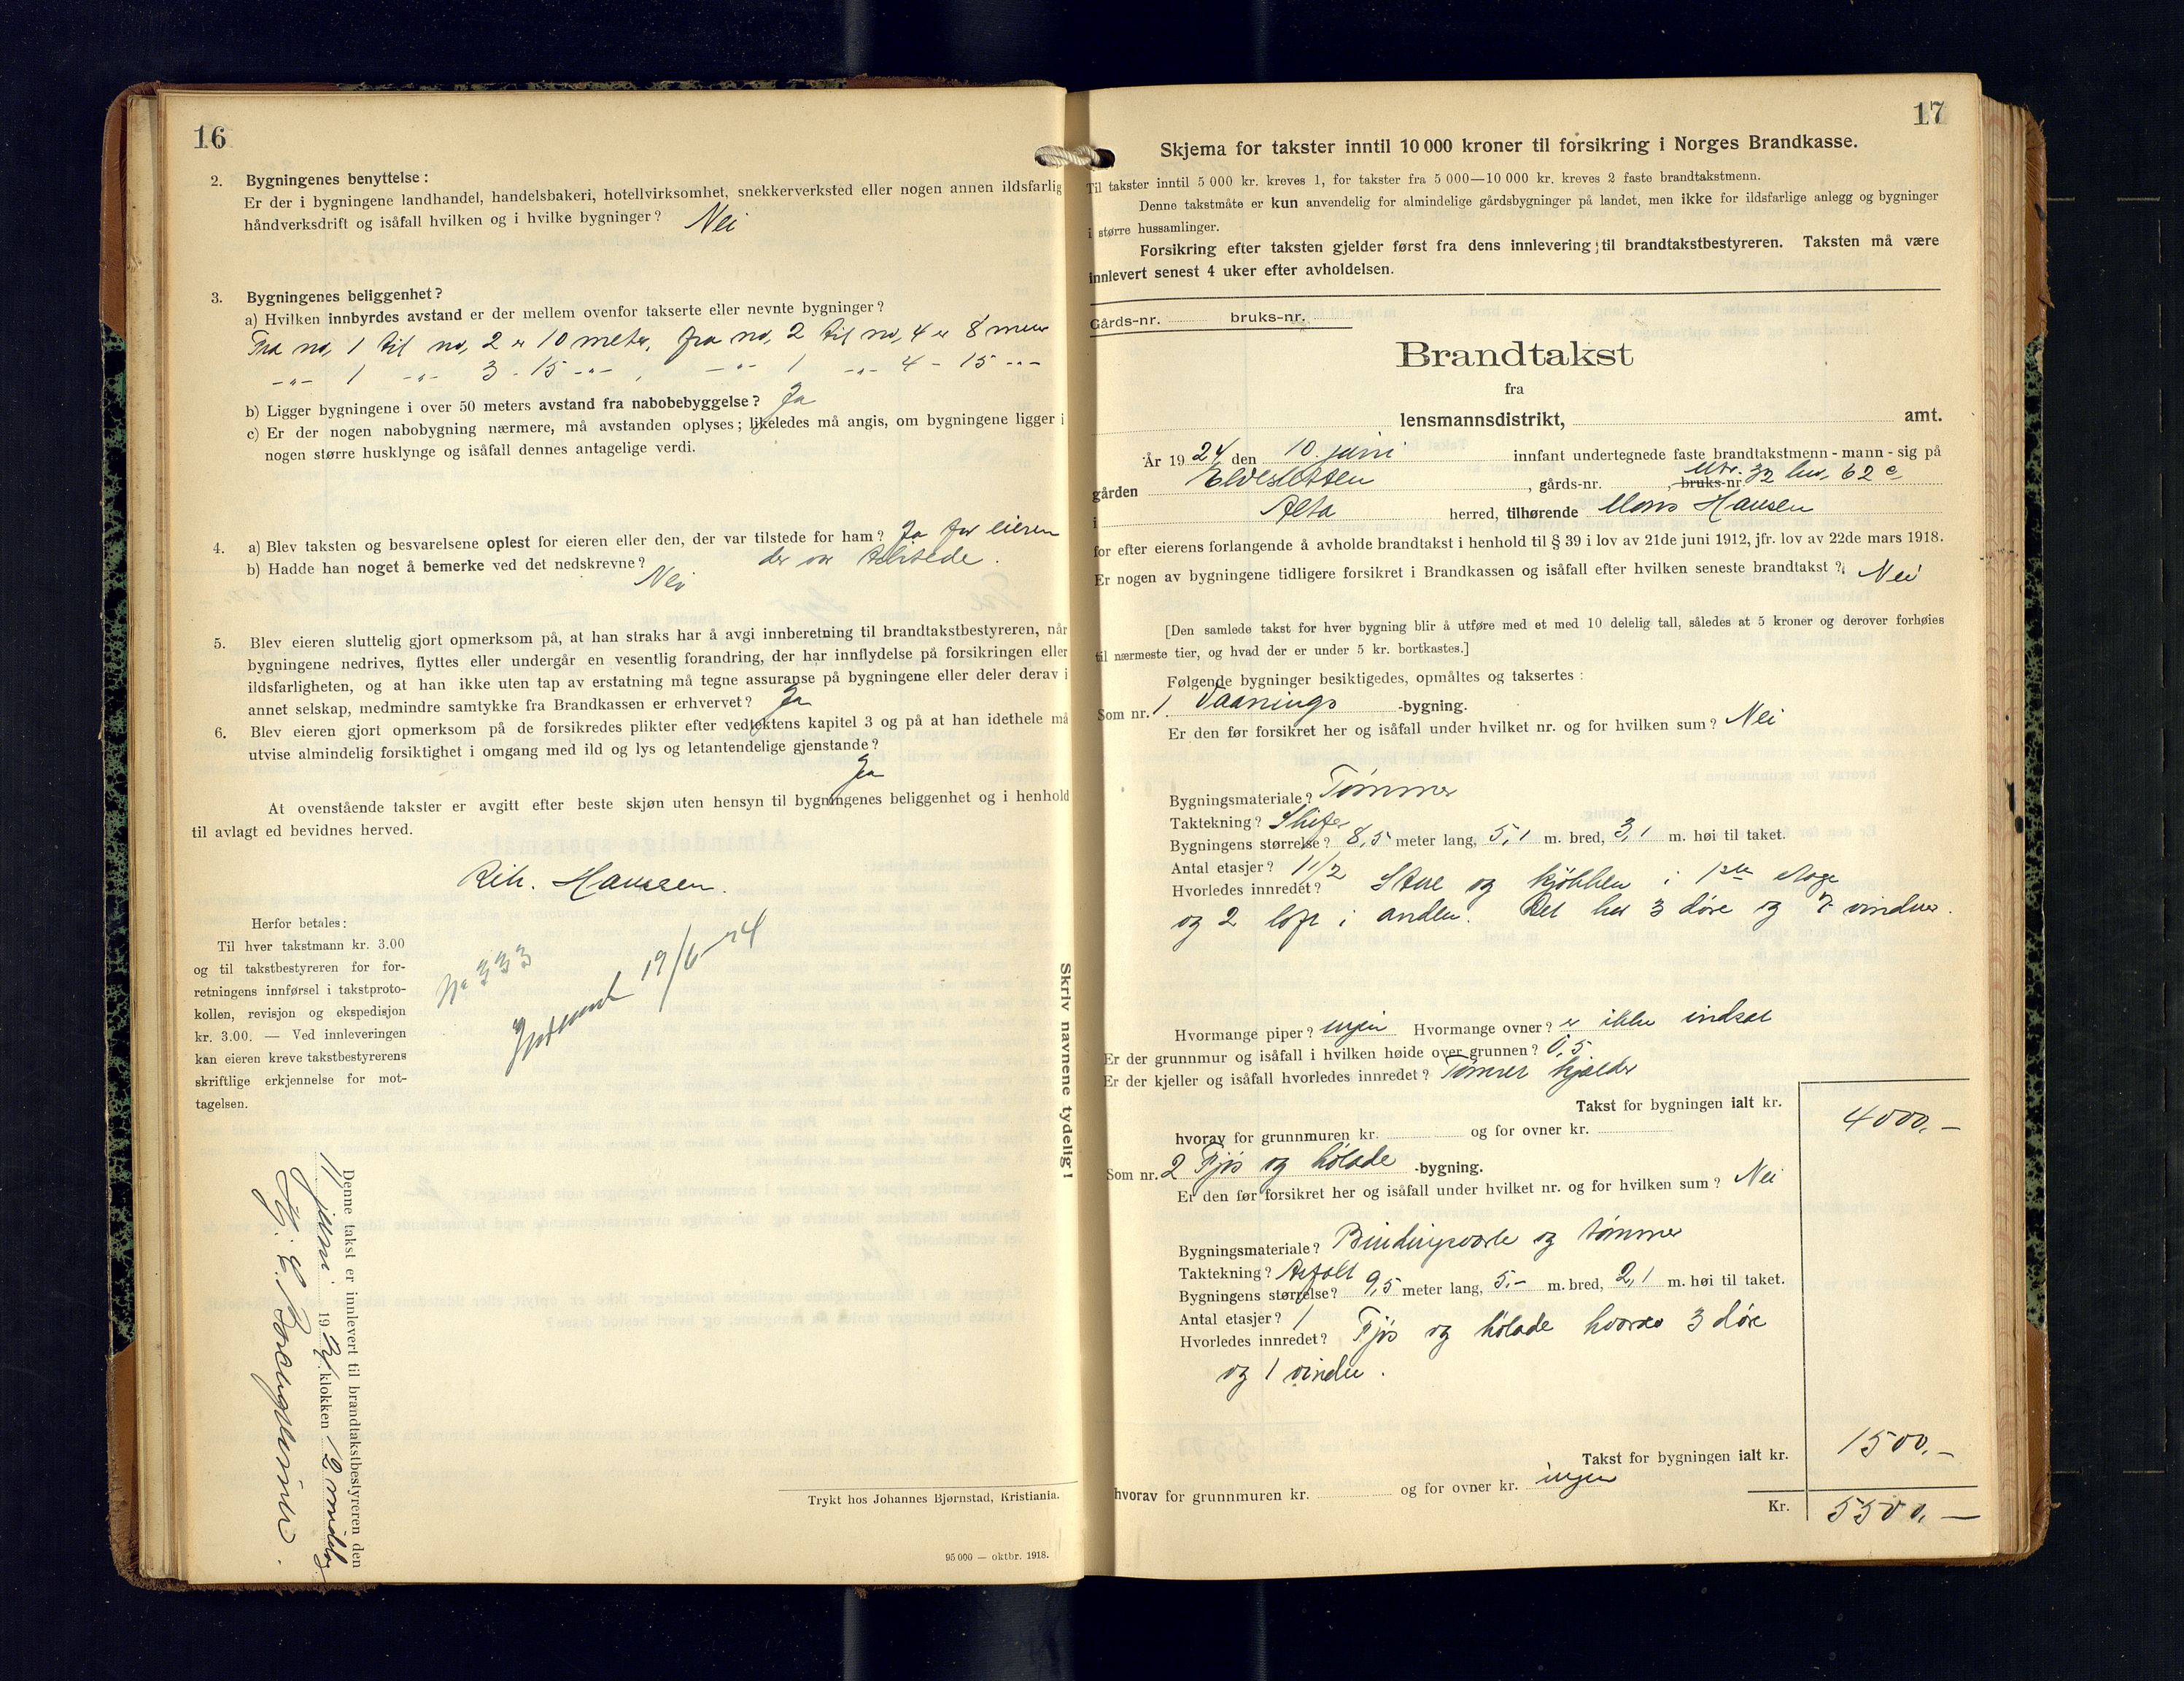 16
2. Bygningenes benyttelse:
Er der i bygningene landhandel, handelsbakeri, hotellvirksomhet, snekkerverksted eller nogen annen ildsfarlig
håndverksdrift og isåfall hvilken og i hvilke bygninger? Nei
3. Bygningenes beliggenhet?
a) Hvilken innbyrdes avstand er der mellem ovenfor takserte eller nevnte bygninger?
Fra no, 1 til no, 2 er 10 meter, fra no, 2 til no, 4 er 8 meter
-"- 1 -"- 3 - 15 -"-, -"- 1 -"- 4 - 15 -"-
b) Ligger bygningene i over 50 meters avstand fra nabobebyggelse? Ja
c) Er der nogen nabobygning nærmere, må avstanden oplyses; likeledes må angis, om bygningene ligger i
nogen større husklynge og isåfall dennes antagelige verdi.
4. a) Blev taksten og besvarelsene oplest for eieren eller den, der var tilstede for ham? Ja for eieren
b) Hadde han noget å bemerke ved det nedskrevne? der var tilstede.
Nei
5. Blev eieren sluttelig gjort opmerksom på, at han straks har å avgi innberetning til brandtakstbestyreren, når
bygningene nedrives, flyttes eller undergår en vesentlig forandring, der har innflydelse på forsikringen eller
ildsfarligheten, og at han ikke uten tap av erstatning må tegne assuranse på bygningene eller deler derav i
annet selskap, medmindre samtykke fra Brandkassen er erhvervet? Ja
6. Blev eieren gjort opmerksom på de forsikredes plikter efter vedtektens kapitel 3 og på at han idethele må
utvise almindelig forsiktighet i omgang med ild og lys og letantendelige gjenstande?
Ja
At ovenstående takster er avgitt efter beste skjøn uten hensyn til bygningenes beliggenhet og i henhold
til avlagt ed bevidnes herved.
Hanssen.
Herfor betales:
Til hver takstmann kr. 3.00
og til takstbestyreren for for-
retningens innførsel i takstproto-
kollen, revisjon og ekspedisjon
kr. 3.00. — Ved innleveringen
kan eieren kreve takstbestyrerens
skriftlige erkjennelse for mot-
tagelsen.
No 333
19/6-24
Skriv navnene tydelig!
Denne takst er innlevert til brandtakstbestyreren den
11 juni 1924 klokken 12 middag
Trykt hos Johannes Bjørnstad, Kristiania.
95 000 — oktbr. 1918.
17
Skjema for takster inntil 10 000 kroner til forsikring i Norges Brandkasse.
Til takster inntil 5 000 kr. kreves 1, for takster fra 5 000—10 000 kr. kreves 2 faste brandtakstmenn.
Denne takstmåte er kun anvendelig for almindelige gårdsbygninger på landet, men ikke for ildsfarlige anlegg og bygninger
i større hussamlinger.
Forsikring efter taksten gjelder først fra dens innlevering til brandtakstbestyreren. Taksten må være
innlevert senest 4 uker efter avholdelsen.
Gårds-nr. bruks-nr.
Brandtakst
fra
lensmannsdistrikt, amt.
År 1924 den 10. juni innfant undertegnede faste brandtakstmenn - mann - sig på
gården Elvesletten, gårds-nr. , bruks-nr. Mtr. 32 lnr. 62 c.
i Alta herred, tilhørende Mons Hansen
for efter eierens forlangende å avholde brandtakst i henhold til § 39 i lov av 21de juni 1912, jfr. lov av 22de mars 1918.
Er nogen av bygningene tidligere forsikret i Brandkassen og isåfall efter hvilken seneste brandtakst? Nei
[Den samlede takst for hver bygning blir å utføre med et med 10 delelig tall, således at 5 kroner og derover forhøies
til nærmeste tier, og hvad der er under 5 kr. bortkastes.]
Følgende bygninger besiktigedes, opmåltes og taksertes:
Som nr. 1. Vaanings -bygning.
Er den før forsikret her og isåfall under hvilket nr. og for hvilken sum? Nei
Bygningsmateriale? Tømmer
Taktekning? Skifer
Bygningens størrelse? 8,5 meter lang, 5,1 m. bred, 3,1 m. høi til taket.
Antal etasjer? 1 1/2
Hvorledes innredet? Stue og kjøkken i 1ste etage
og 2 loft i anden. Det har 3 døre og 7 vinduer.
Hvormange piper? ingen Hvormange ovner? er ikke indsat
Er der grunnmur og isåfall i hvilken høide over grunnen? 0,5
Er der kjeller og isåfall hvorledes innredet? Tømret kjælder
Takst for bygningen ialt kr. 4000,-
hvorav for grunnmuren kr. og for ovner kr.
Som nr. 2 Fjøs og hølade -bygning.
Er den før forsikret her og isåfall under hvilket nr. og for hvilken sum? Nei
Bygningsmateriale? Bindingsverk og tømmer
Taktekning? Asfalt
Bygningens størrelse? 9,5 meter lang, 5,- m. bred, 2,1 m. høi til taket.
Antal etasjer? 1
Hvorledes innredet? Fjøs og hølade 3 døre
og 1 vindu.
Takst for bygningen ialt kr. 1500,-
hvorav for grunnmuren kr. og for ovner kr. ingen
Kr. 5500,-